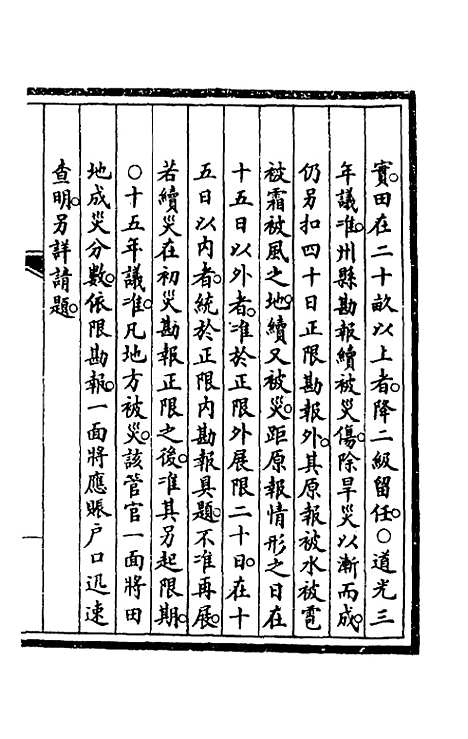 實。田在二十畝以上者。降二級留任。○道光三
年議准。州縣勘報續被災傷。除旱災以漸而成。
仍另扣四十日正限勘報外。其原報被水被雹
被霜被風之地。續又被災。距原報情形之日在
十五日以外者。准於正限外展限二十日。在十
五日以內者。統於正限內勘報具題。不准再展。
若續災在初災勘報正限之後。准其另起限期。
○十五年議准。凡地方被災。該管官一面將田
地成災分數。依限勘報。一面將應賑戶口迅速
查明。另詳請題。